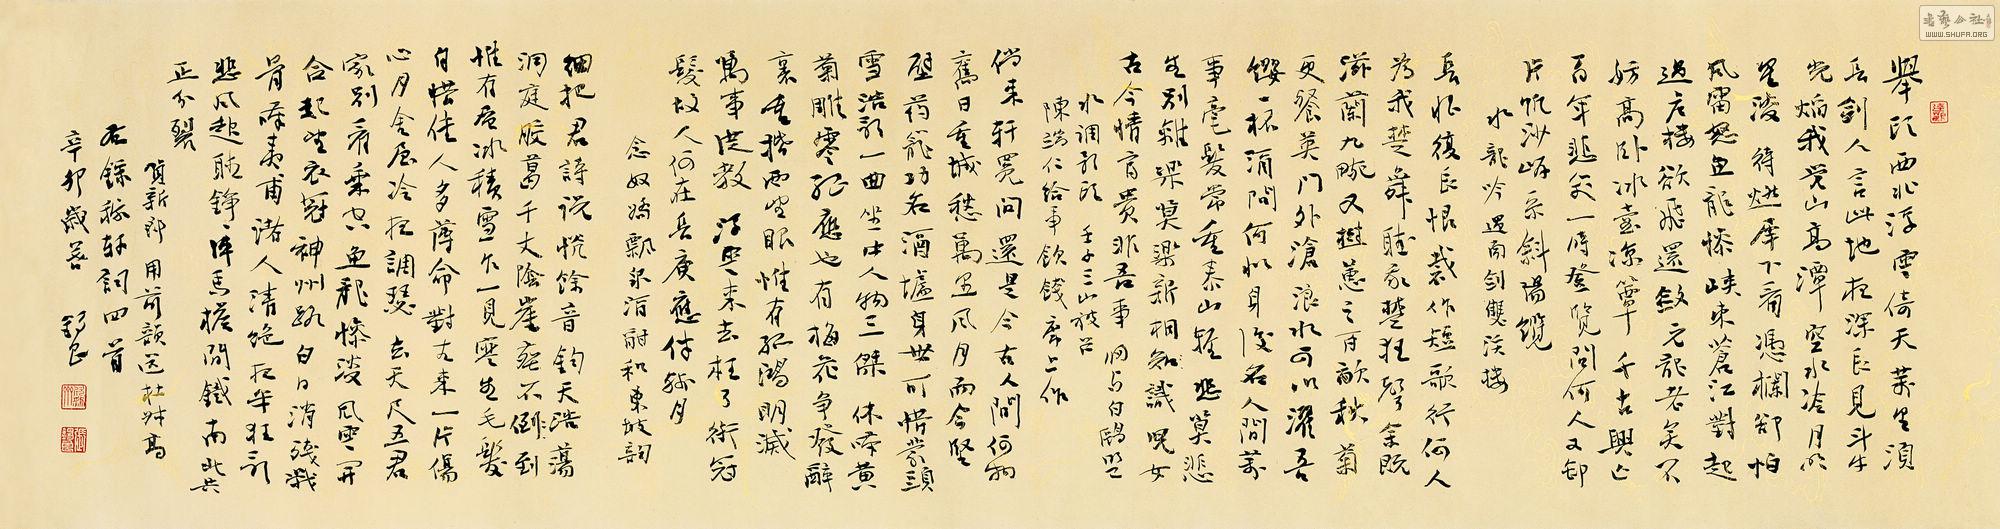 舉頭西北浮雲倚天萬里須
長劍人言此地夜深長見斗牛
光焰我覺山高潭空水冷月明
星淡待燃犀下看憑欄卻怕
風雷怒魚龍慘峽束蒼江對起
過危樓欲飛還斂元龍老矣不
妨高卧冰壺涼簟千古興亡
百年悲笑一時登覽問何人又卸
片帆沙岸系斜陽纜
水龍吟過南劍雙溪樓
長恨復長恨裁作短歌行何人
為我楚舞聽我楚狂聲余既
滋蘭九畹又樹蕙之百畝秋菊
更餐英門外滄浪水可以濯吾
纓一杯酒問何似身後名人間萬
事毫髮常重泰山輕悲莫悲
生別離樂莫樂新相識兒女
古今情富貴非吾事歸與白鷗盟
水調歌頭 壬子三山被召
陳端仁給事飲餞席上作
倘來軒冕問還是今古人間何物
舊日重城愁萬里風月而今堅
壁藥籠功名酒壚身世可惜蒙頭
雪浩歌一曲坐中人物三傑休嘆黃
菊雕零孤應也有梅花爭發醉
裏重揩西望眼惟有孤鴻明滅
萬事從教浮雲來去枉了衝冠
髮故人何在長庚應伴殘月
念奴嬌瓢泉酒酣和東坡韻
細把君詩說恍餘音鈞天浩蕩
洞庭膠葛千丈陰崖塵不到
惟有層冰積雪乍一見寒生毛髮
自惜佳人多薄命對古來一片傷
心月金屋冷夜調瑟 去天尺五君
家別看乘空魚龍慘淡風雲開
合起望衣冠神州路白日消殘戰
骨嘆夷甫諸人清絕夜半狂歌
悲風起聽錚錚陣馬檐間鐵南北共
正分裂
賀新郎用前韻送杜叔高
右錄稼軒詞四首
辛卯歲暮
WWW.SHUFA.ORG